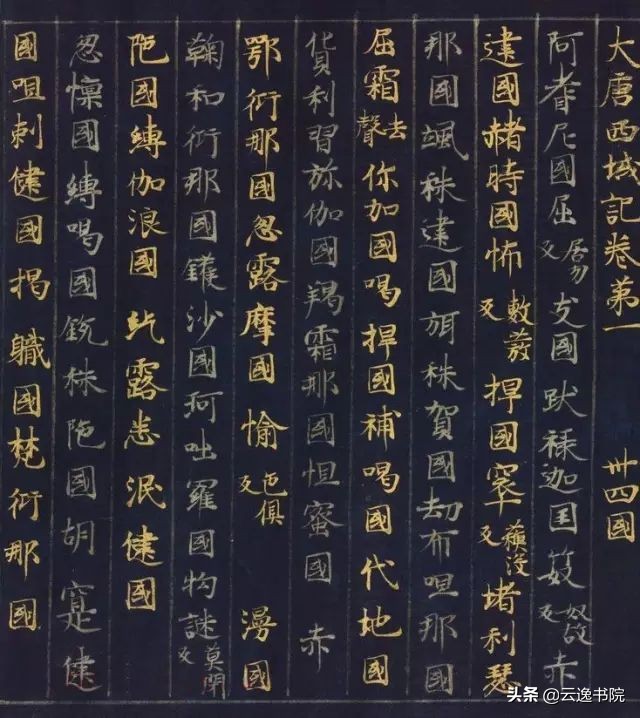 大唐西域記卷第一 卅四國
阿耆尼國屈居勿反支國跋禄迦国笯奴故反赤
建國赭時國怖敷發反捍國窣蘇没反堵利瑟
那國颯秣建國弭秣賀國劫布呾那國
屈霜去聲你加國喝捍國補喝國代地國
貨利習弥伽國羯霜那國怛蜜國 赤
鄂衍那國忽露摩國愉色俱反 漫國
鞠和衍那國鑊沙國珂咄羅國拘謎莫閇反
陁國縛伽浪國紇露悉泯健國
忽懍國縛喝國銳秣陁國胡寔健
國呾剌健國揭職國梵衍那國
头条 @云逸书院